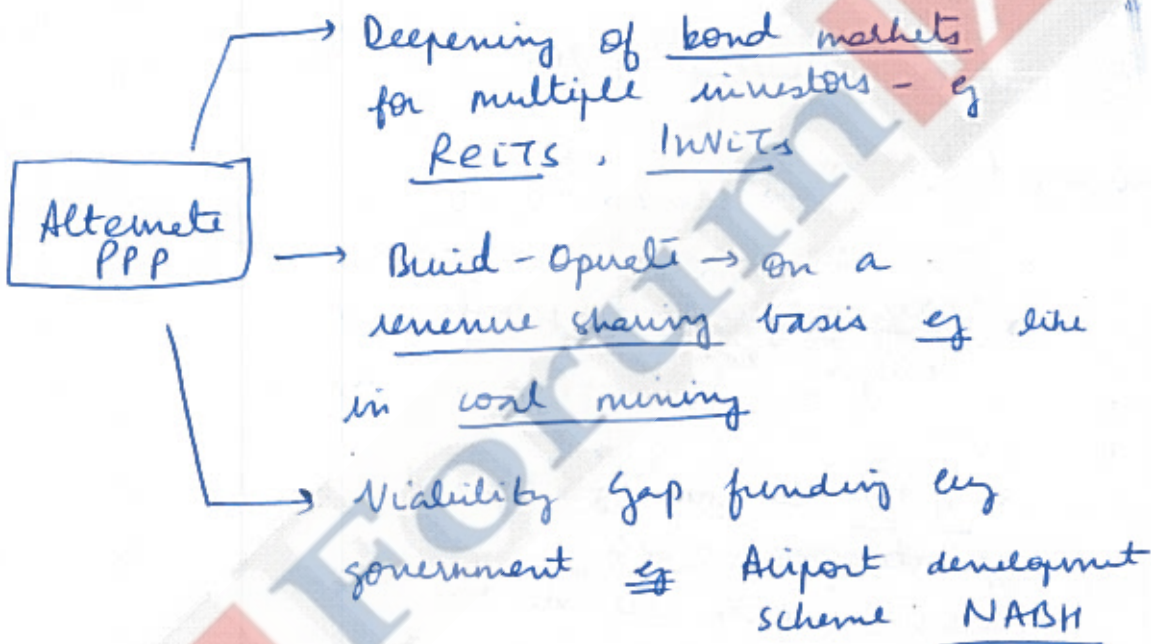 Deepening of bond markets
for multiple investors - eg
ReITS, InViTs
Alternate
PPP
Build - Operate → on a
revenue sharing basis eg like
in coal mining
Viability Gap funding by
government eg Airport development
scheme NABH
Forum